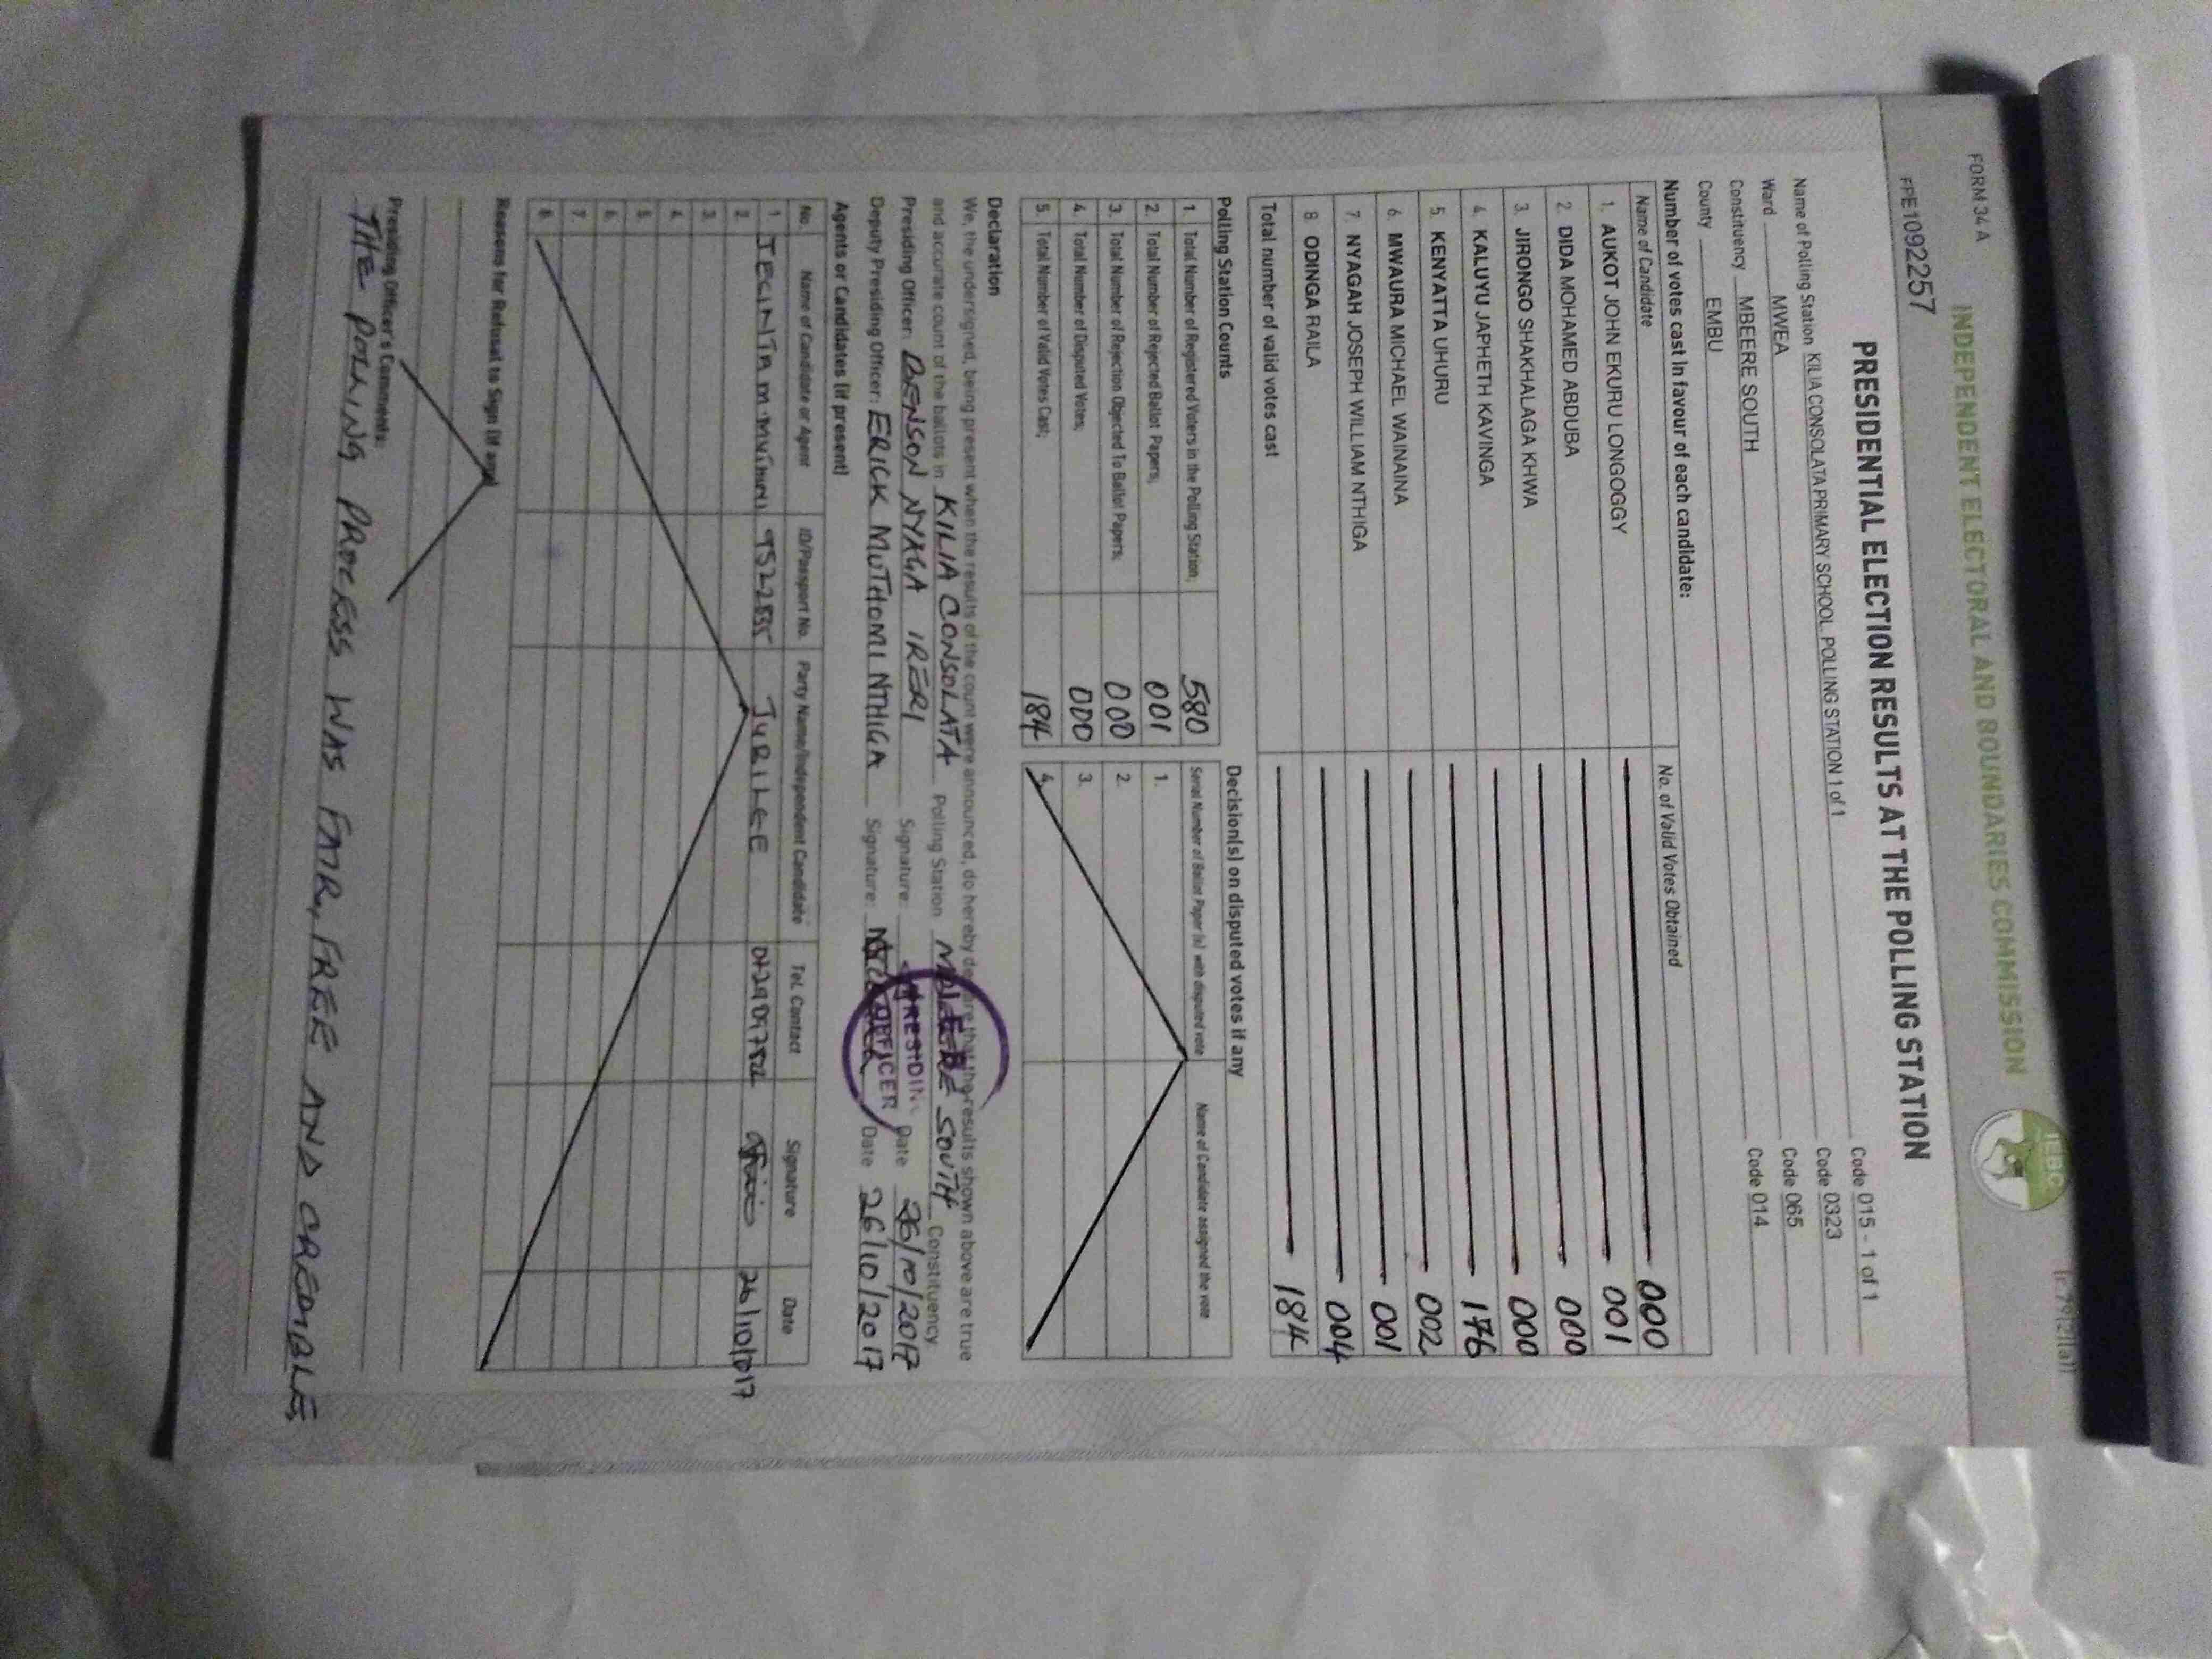 FORM 34 A
INDEPENDENT ELECTORAL AND BOUNDARIES COMMISSION
IEBC
FPE1092257
PRESIDENTIAL ELECTION RESULTS AT THE POLLING STATION
Name of Polling Station KILIA CONSOLATA PRIMARY SCHOOL, POLLING STATION 1 of 1 Code 015 - 1 of 1
Ward MWEA Code 0323
Constituency MBEERE SOUTH Code 065
County EMBU Code 014
Number of votes cast in favour of each candidate:
Name of Candidate No. of Valid Votes Obtained
1. AUKOT JOHN EKURU LONGOGGY 000
2. DIDA MOHAMED ABDUBA 001
3. JIRONGO SHAKHALAGA KHWA 000
4. KALUYU JAPHETH KAVINGA 000
5. KENYATTA UHURU 176
6. MWAURA MICHAEL WAINAINA 002
7. NYAGAH JOSEPH WILLIAM NTHIGA 001
8 ODINGA RAILA 004
Total number of valid votes cast 184
Polling Station Counts
1. Total Number of Registered Voters in the Polling Station; 580
2. Total Number of Rejected Ballot Papers; 001
3. Total Number of Rejection Objected To Ballot Papers; 000
4. Total Number of Disputed Votes; 000
5. Total Number of Valid Votes Cast; 184
Decision(s) on disputed votes if any
Serial Number of Ballot Paper (s) with disputed vote Name of Candidate assigned the vote
1.
2.
3.
4.
Declaration
We, the undersigned, being present when the results of the count were announced, do hereby declare that the results shown above are true
and accurate count of the ballots in KILIA CONSOLATA Polling Station MBEERE SOUTH Constituency
Presiding Officer: BENSON NYAGA IRERI Signature: Date 26/10/2017
Deputy Presiding Officer: ERICK MUTHOMI NTHIGA Signature: Date 26/10/2017
PRESIDING
OFFICER
Agents or Candidates (if present)
No. Name of Candidate or Agent ID/Passport No. Party Name/Independent Candidate Tel. Contact Signature Date
1 JUBILEE
2.
3.
4.
5.
6.
7.
8.
Reasons for Refusal to Sign (if any)
Presiding Officer's Comments:
THE POLLING PROCESS WAS FAIR, FREE AND CREDIBLE.